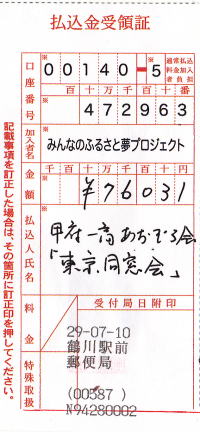 払込金受領証
口座番号
※
00140-5
通常払込料金加入者負担
百十万千百十番
※
472963
加入者名
※
みんなのふるさと夢プロジェクト
金額
千百十万千百十円
※
¥76031
払込人氏名
※
甲府一高あおぞら会
「東京同窓会」
料金
特殊取扱
受付局日附印
29-07-10
鶴川駅前
郵便局
(00587)
N94280002
記載事項を訂正した場合は、その箇所に訂正印を押してください。